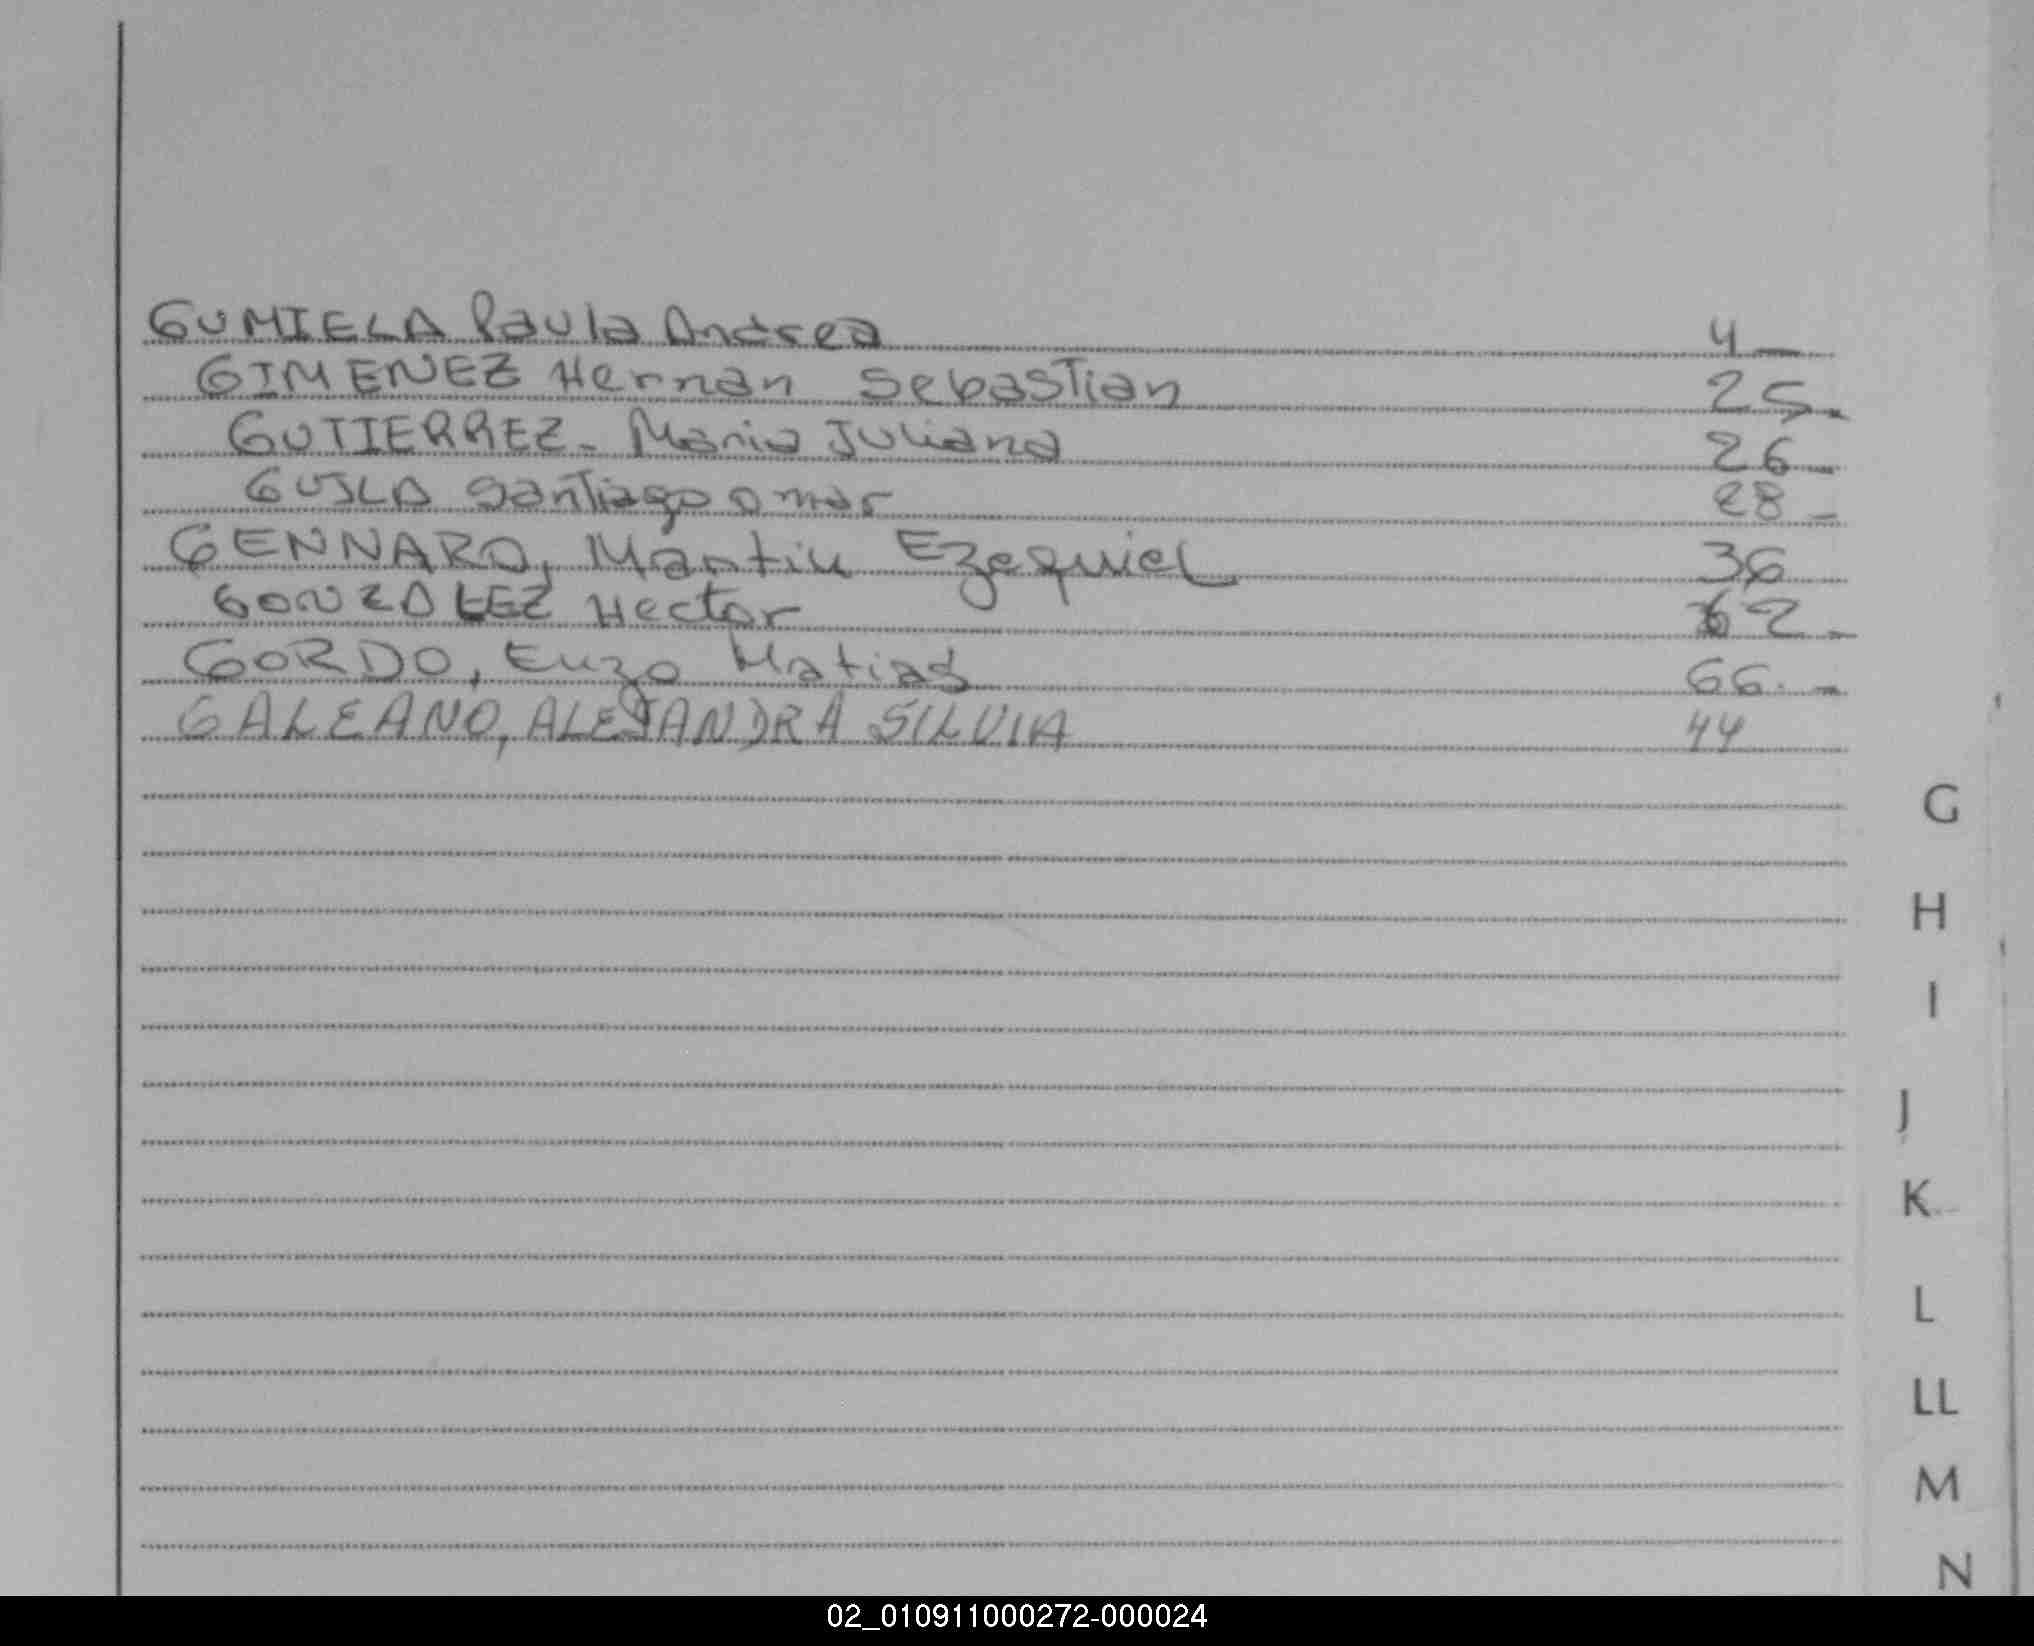 GUMIELA Paula Andrea 4 —
GIMENEZ Hernan Sebastian 25.-
GUTIERREZ - Maria Juliana 26 -
Santiago omar 28 -
GENNARO, Martin Ezequiel 36
GONZALEZ Hector 62 -
GORDO, Enzo Matias 66. -
GALEANO, ALEJANDRA SILVIA 44
G
H
I
J
K
L
LL
M
N
02_010911000272-000024